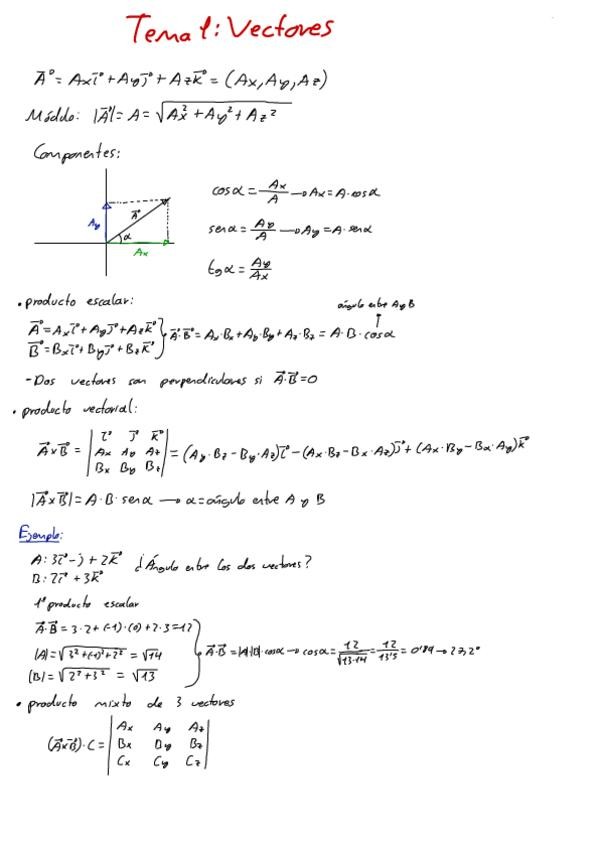 Tema 1: Vectores
A⃗ = Axi⃗ + Ayj⃗ + Azk⃗ = (Ax, Ay, Az)
Módulo: |A⃗| = A = √(Ax² + Ay² + Az²)
Componentes:
cosα = Ax/A → Ax = A·cosα
Ay A⃗ α Ax
senα = Ay/A → Ay = A·senα
tgα = Ay/Ax
• producto escalar:
ángulo entre A y B
A⃗ = Axi⃗ + Ayj⃗ + Azk⃗
B⃗ = Bxi⃗ + Byj⃗ + Bzk⃗ } A⃗·B⃗ = Ax·Bx + Ay·By + Az·Bz = A·B·cosα
- Dos vectores son perpendiculares si A⃗·B⃗ = 0
• producto vectorial:
A⃗×B⃗ = | i⃗ j⃗ k⃗ |
| Ax Ay Az | = (Ay·Bz - By·Az)i⃗ - (Ax·Bz - Bx·Az)j⃗ + (Ax·By - Bx·Ay)k⃗
| Bx By Bz |
|A⃗×B⃗| = A·B·senα → α = ángulo entre A y B
Ejemplo:
A: 3i⃗ - j + 2k⃗ ¿Ángulo entre los dos vectores?
B: 2i⃗ + 3k⃗
1º producto escalar
A⃗·B⃗ = 3·2 + (-1)·(0) + 2·3 = 12
|A| = √(3² + (-1)² + 2²) = √14 } A⃗·B⃗ = |A|·|B|·cosα → cosα = 12/√(13·14) = 12/13'5 = 0'89 → 27,2°
|B| = √(2² + 3²) = √13
• producto mixto de 3 vectores
(A⃗×B⃗)·C = | Ax Ay Az |
| Bx By Bz |
| Cx Cy Cz |